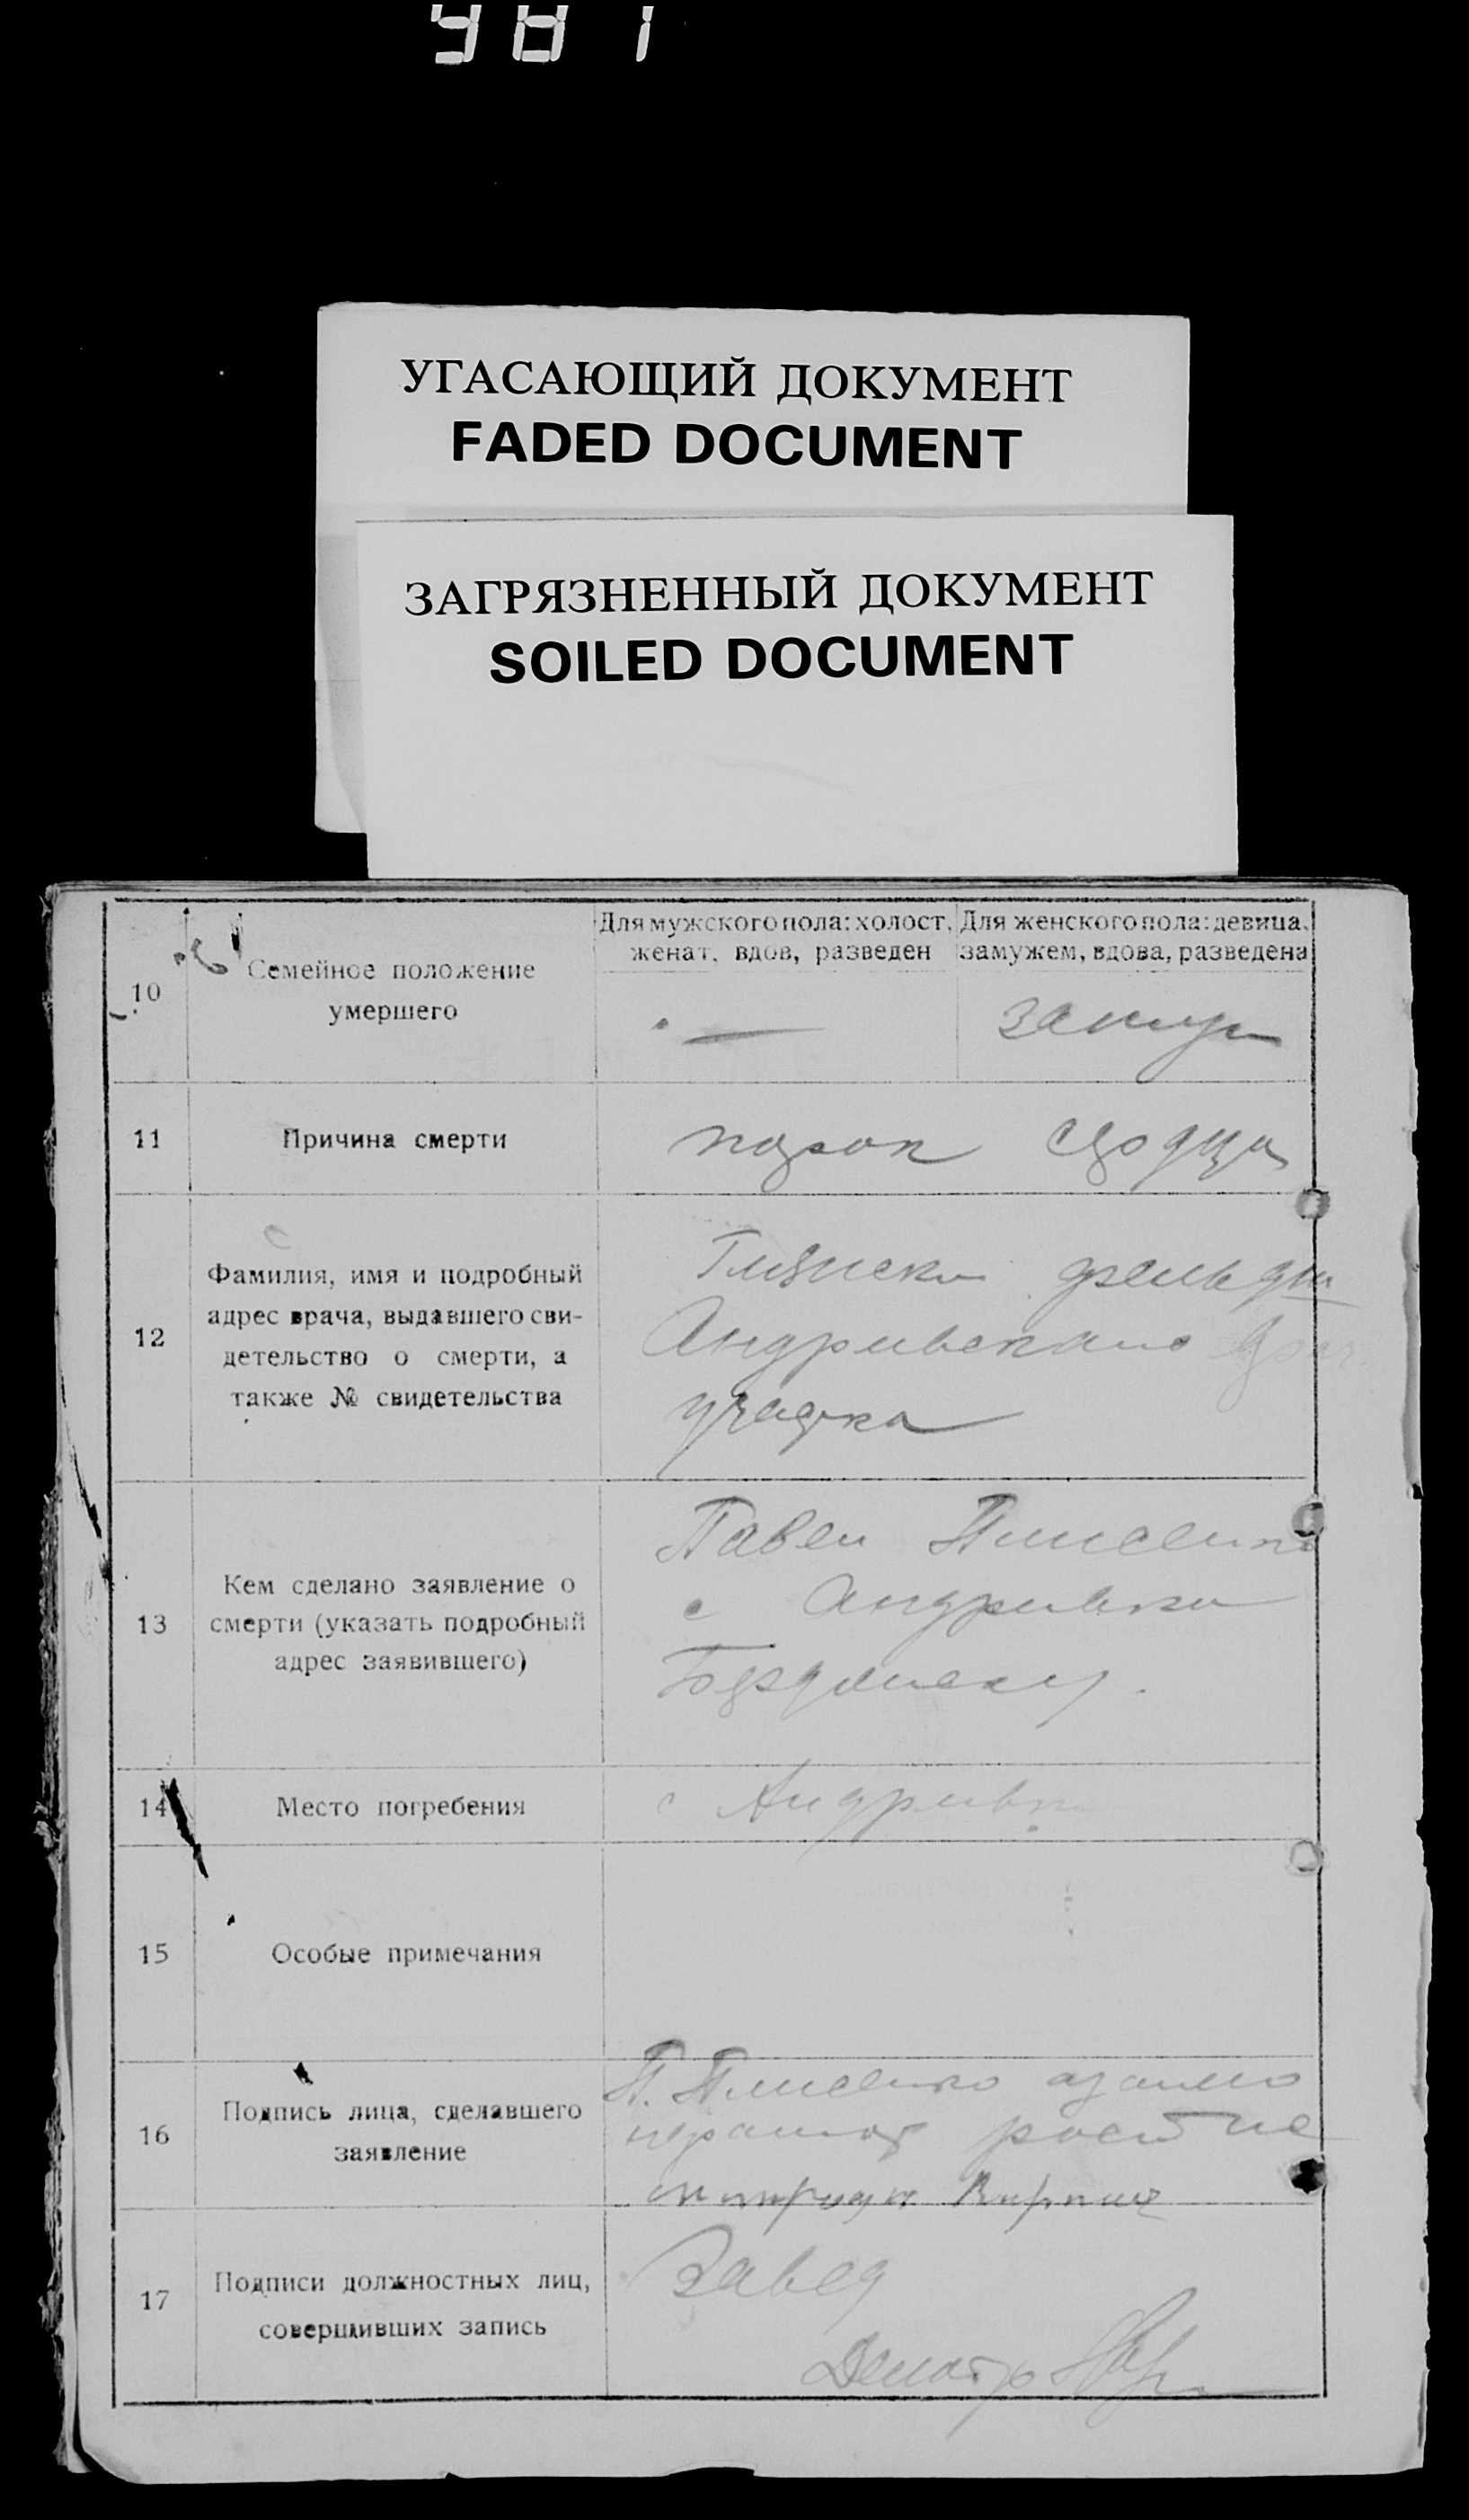 981
УГАСАЮЩИЙ ДОКУМЕНТ
FADED DOCUMENT
ЗАГРЯЗНЕННЫЙ ДОКУМЕНТ
SOILED DOCUMENT
10
Семейное положение
умершего
Для мужского пола: холост,
женат, вдов, разведен
Для женского пола: девица,
замужем, вдова, разведена
—
замуж
11
Причина смерти
порок
12
Фамилия, имя и подробный
адрес врача, выдавшего сви-
детельство о смерти, а
также № свидетельства
Андриевского
участка
13
Кем сделано заявление о
смерти (указать подробный
адрес заявившего)
Павел
с Андриевка
14
Место погребения
с Андриевк
15
Особые примечания
16
Подпись лица, сделавшего
заявление
П.
17
Подписи должностных лиц,
совершивших запись
Завед